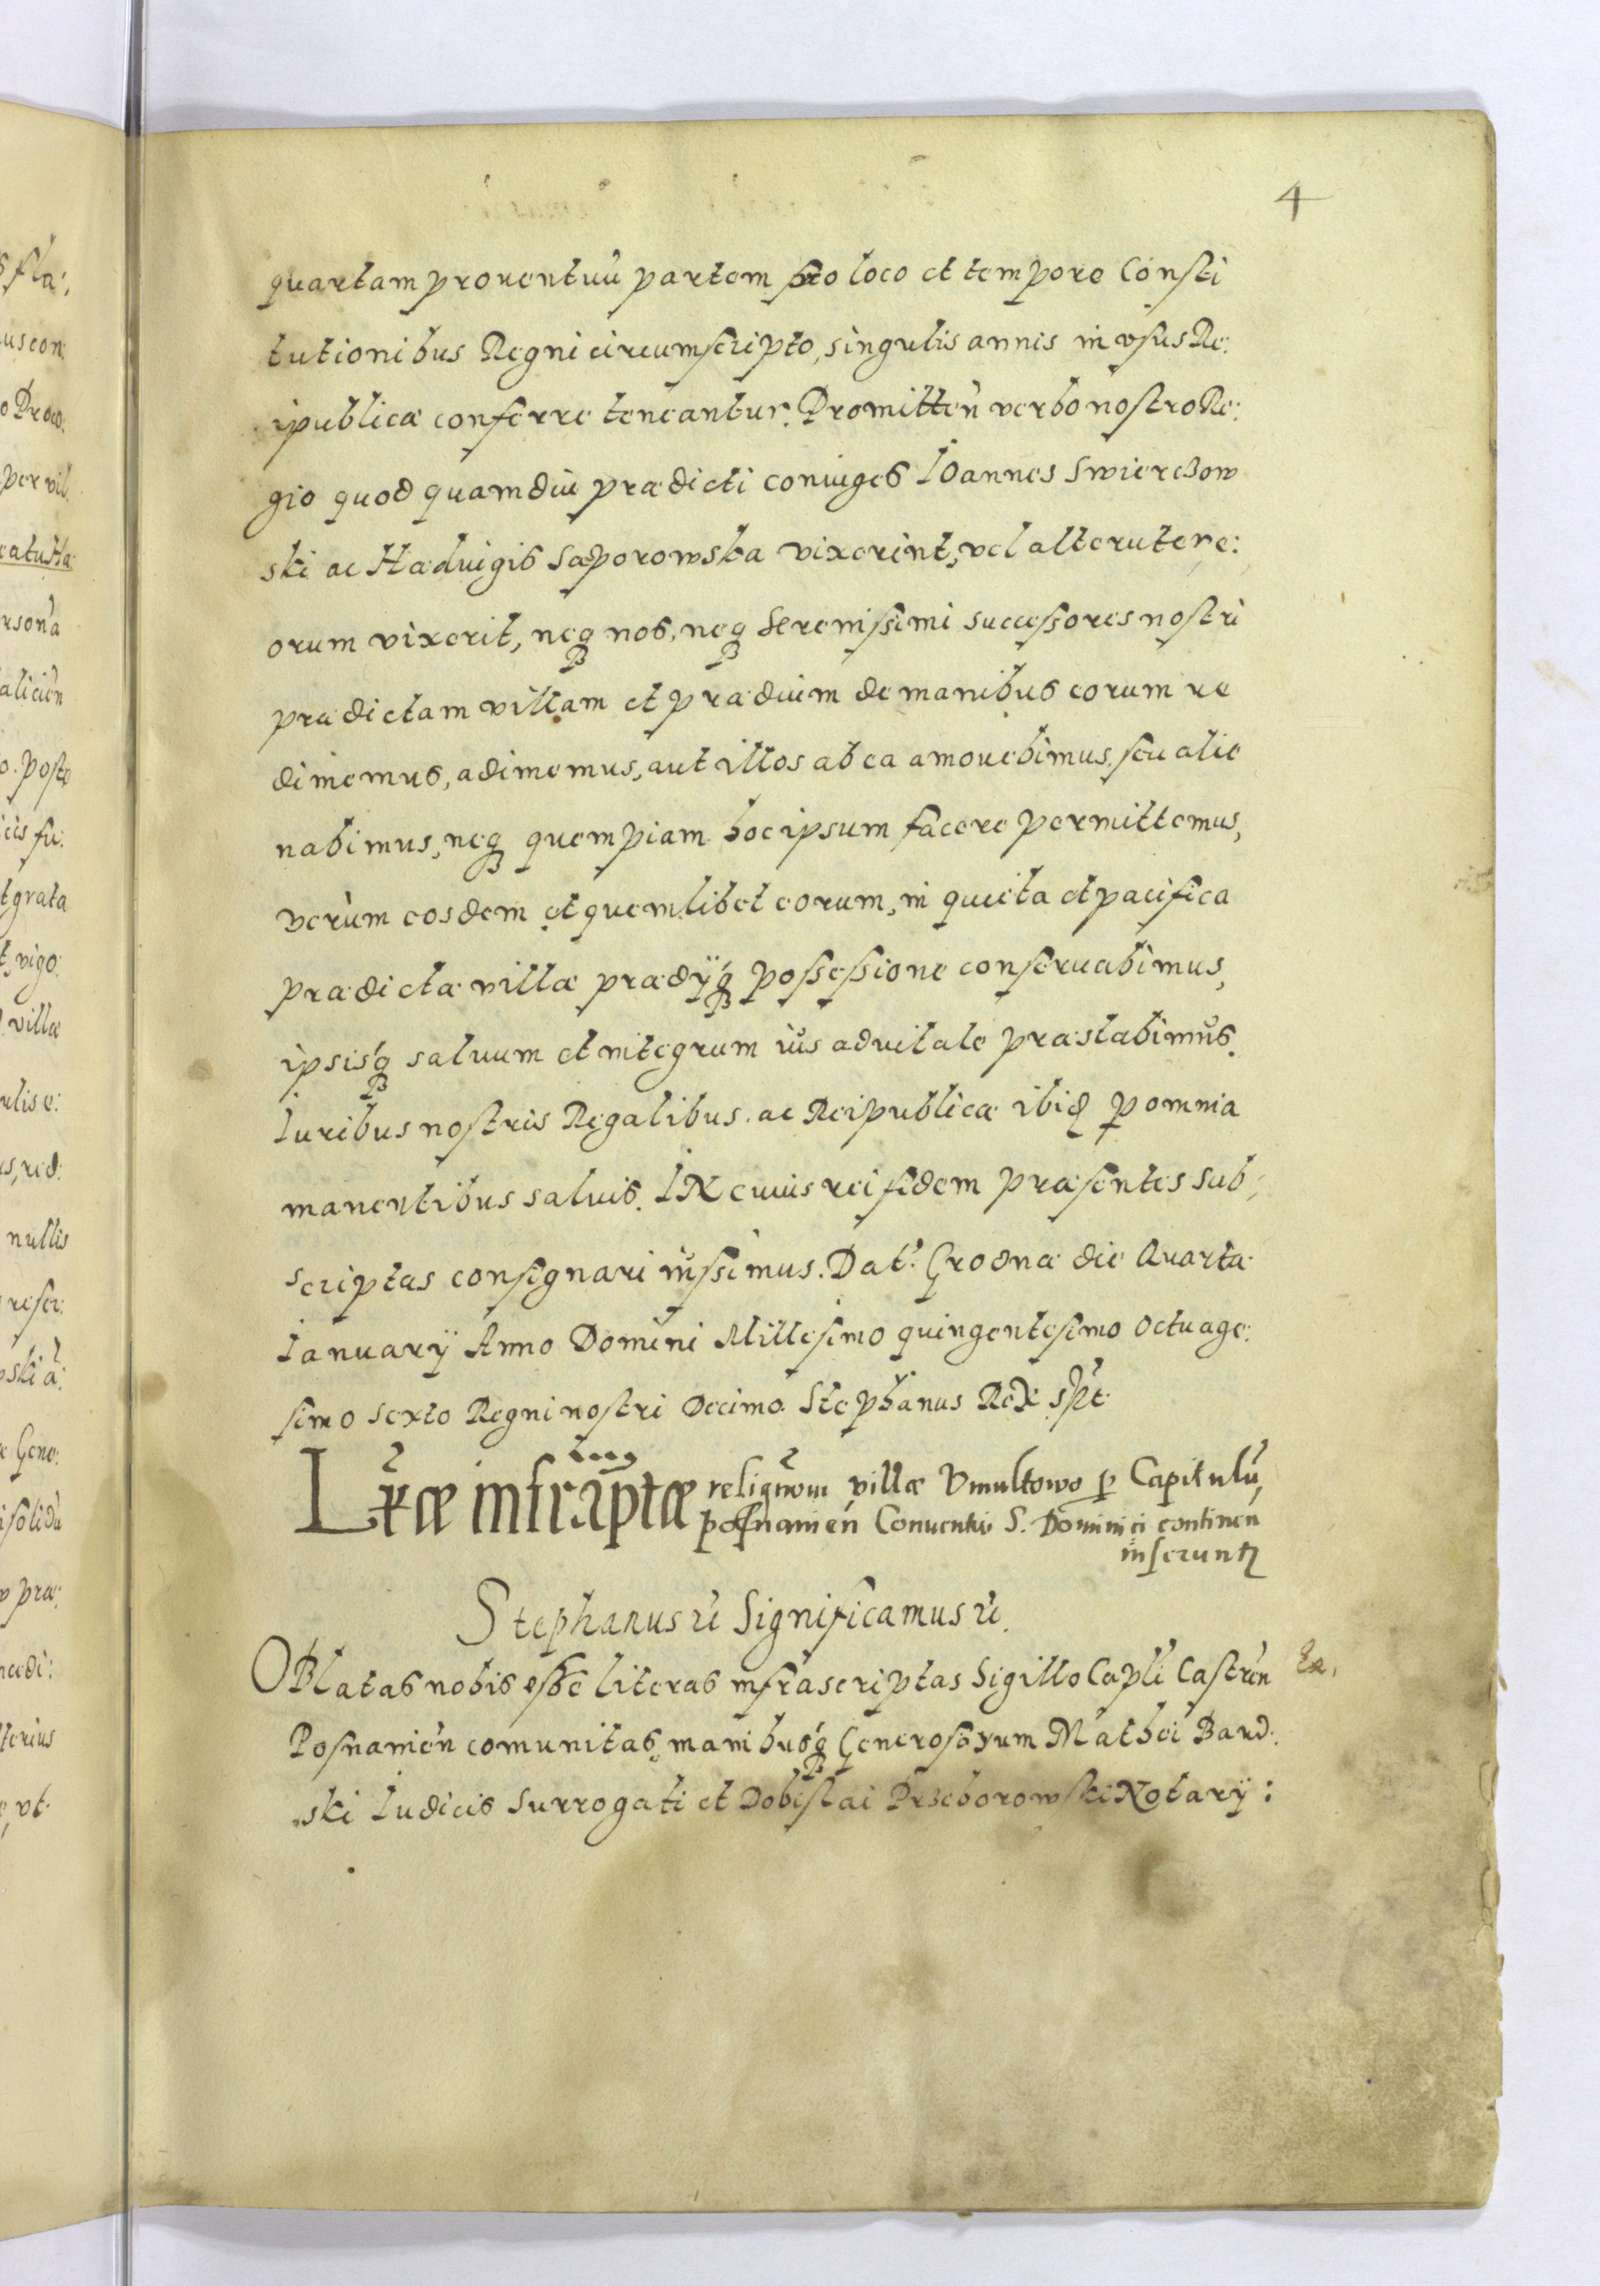 4
quartam prouentuũ partem suo loco et tempore Consti
tutionibus Regni circumscripto, singulis annis in vsus Re:
ipublicæ conferre teneantur. Promitteñ verbo nostro Re:
gio quod quamdiu prædicti coniuges Ioannes Swierczow
ski ac Haduigis Saporowska vixerint, vel alteruter e:
orum vixerit, neqз nos, neqз Serenissimi successores nostri
prædictam villam et prædium de manibus eorum re
dimemus, adimemus, aut illos ab ea amouebimus, seu alie
nabimus, neqз quempiam hoc ipsum facere permittemus,
verùm eosdem et quemlibet eorum, in quieta et pacifica
prædictæ villæ prædijqз possessione conseruabimus,
ipsisqз saluum et integrum ius aduitale præstabimus.
Iuribus nostris Regalibus ac Reipublicæ ibid ꝑ omnia
manentibus saluis. IN cuius rei fidem præsentes sub:
scriptas consignari iussimus. Dat. Grodnæ die Quarta
Ianuarij Anno Domini Millesimo quingentesimo octuage:
simo sexto Regni nostri Decimo. Stephanus Rex sṕt
Lr̃æ infrascriptæ religiõni villæ Vmultowo ꝑ Capitulũ
posnanień Conuentui S. Dominici continen
inseruntꝫ
Stephanus ꝛc̃ Significamus ꝛc̃.
OBlatas nobis esse literas infrascriptas Sigillo Capłi Castreñ
Posnanień comunitas, manibusqз Generosorum Mathei Bard:
ski Iudicis Surrogati et Dobislai Przeborowski Notarij: